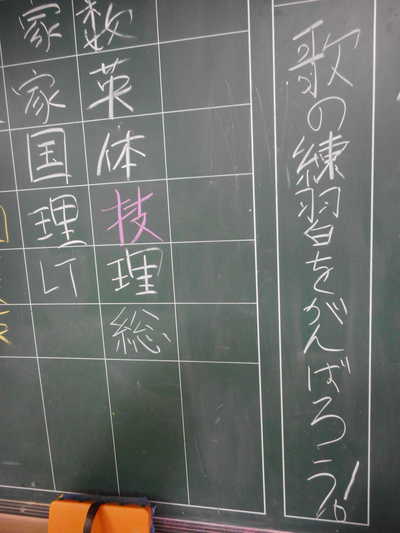 歌の練習をがんばろう!!
数
英
体
技
理
総
家
家
国
理
LT